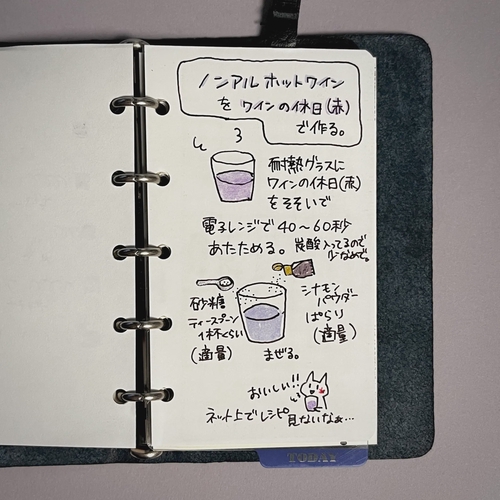 ノンアルホットワイン
を ワインの休日(赤)
で作る。
耐熱グラスに
ワインの休日(赤)
をそそいで
電子レンジで40〜60秒
あたためる。炭酸入ってるので
少なめで。
砂糖
ティースプーン
1杯くらい
(適量)
シナモン
パウダー
ぱらり
(適量)
まぜる。
おいしい!!
ネット上でレシピ見ないなぁ…
TODAY